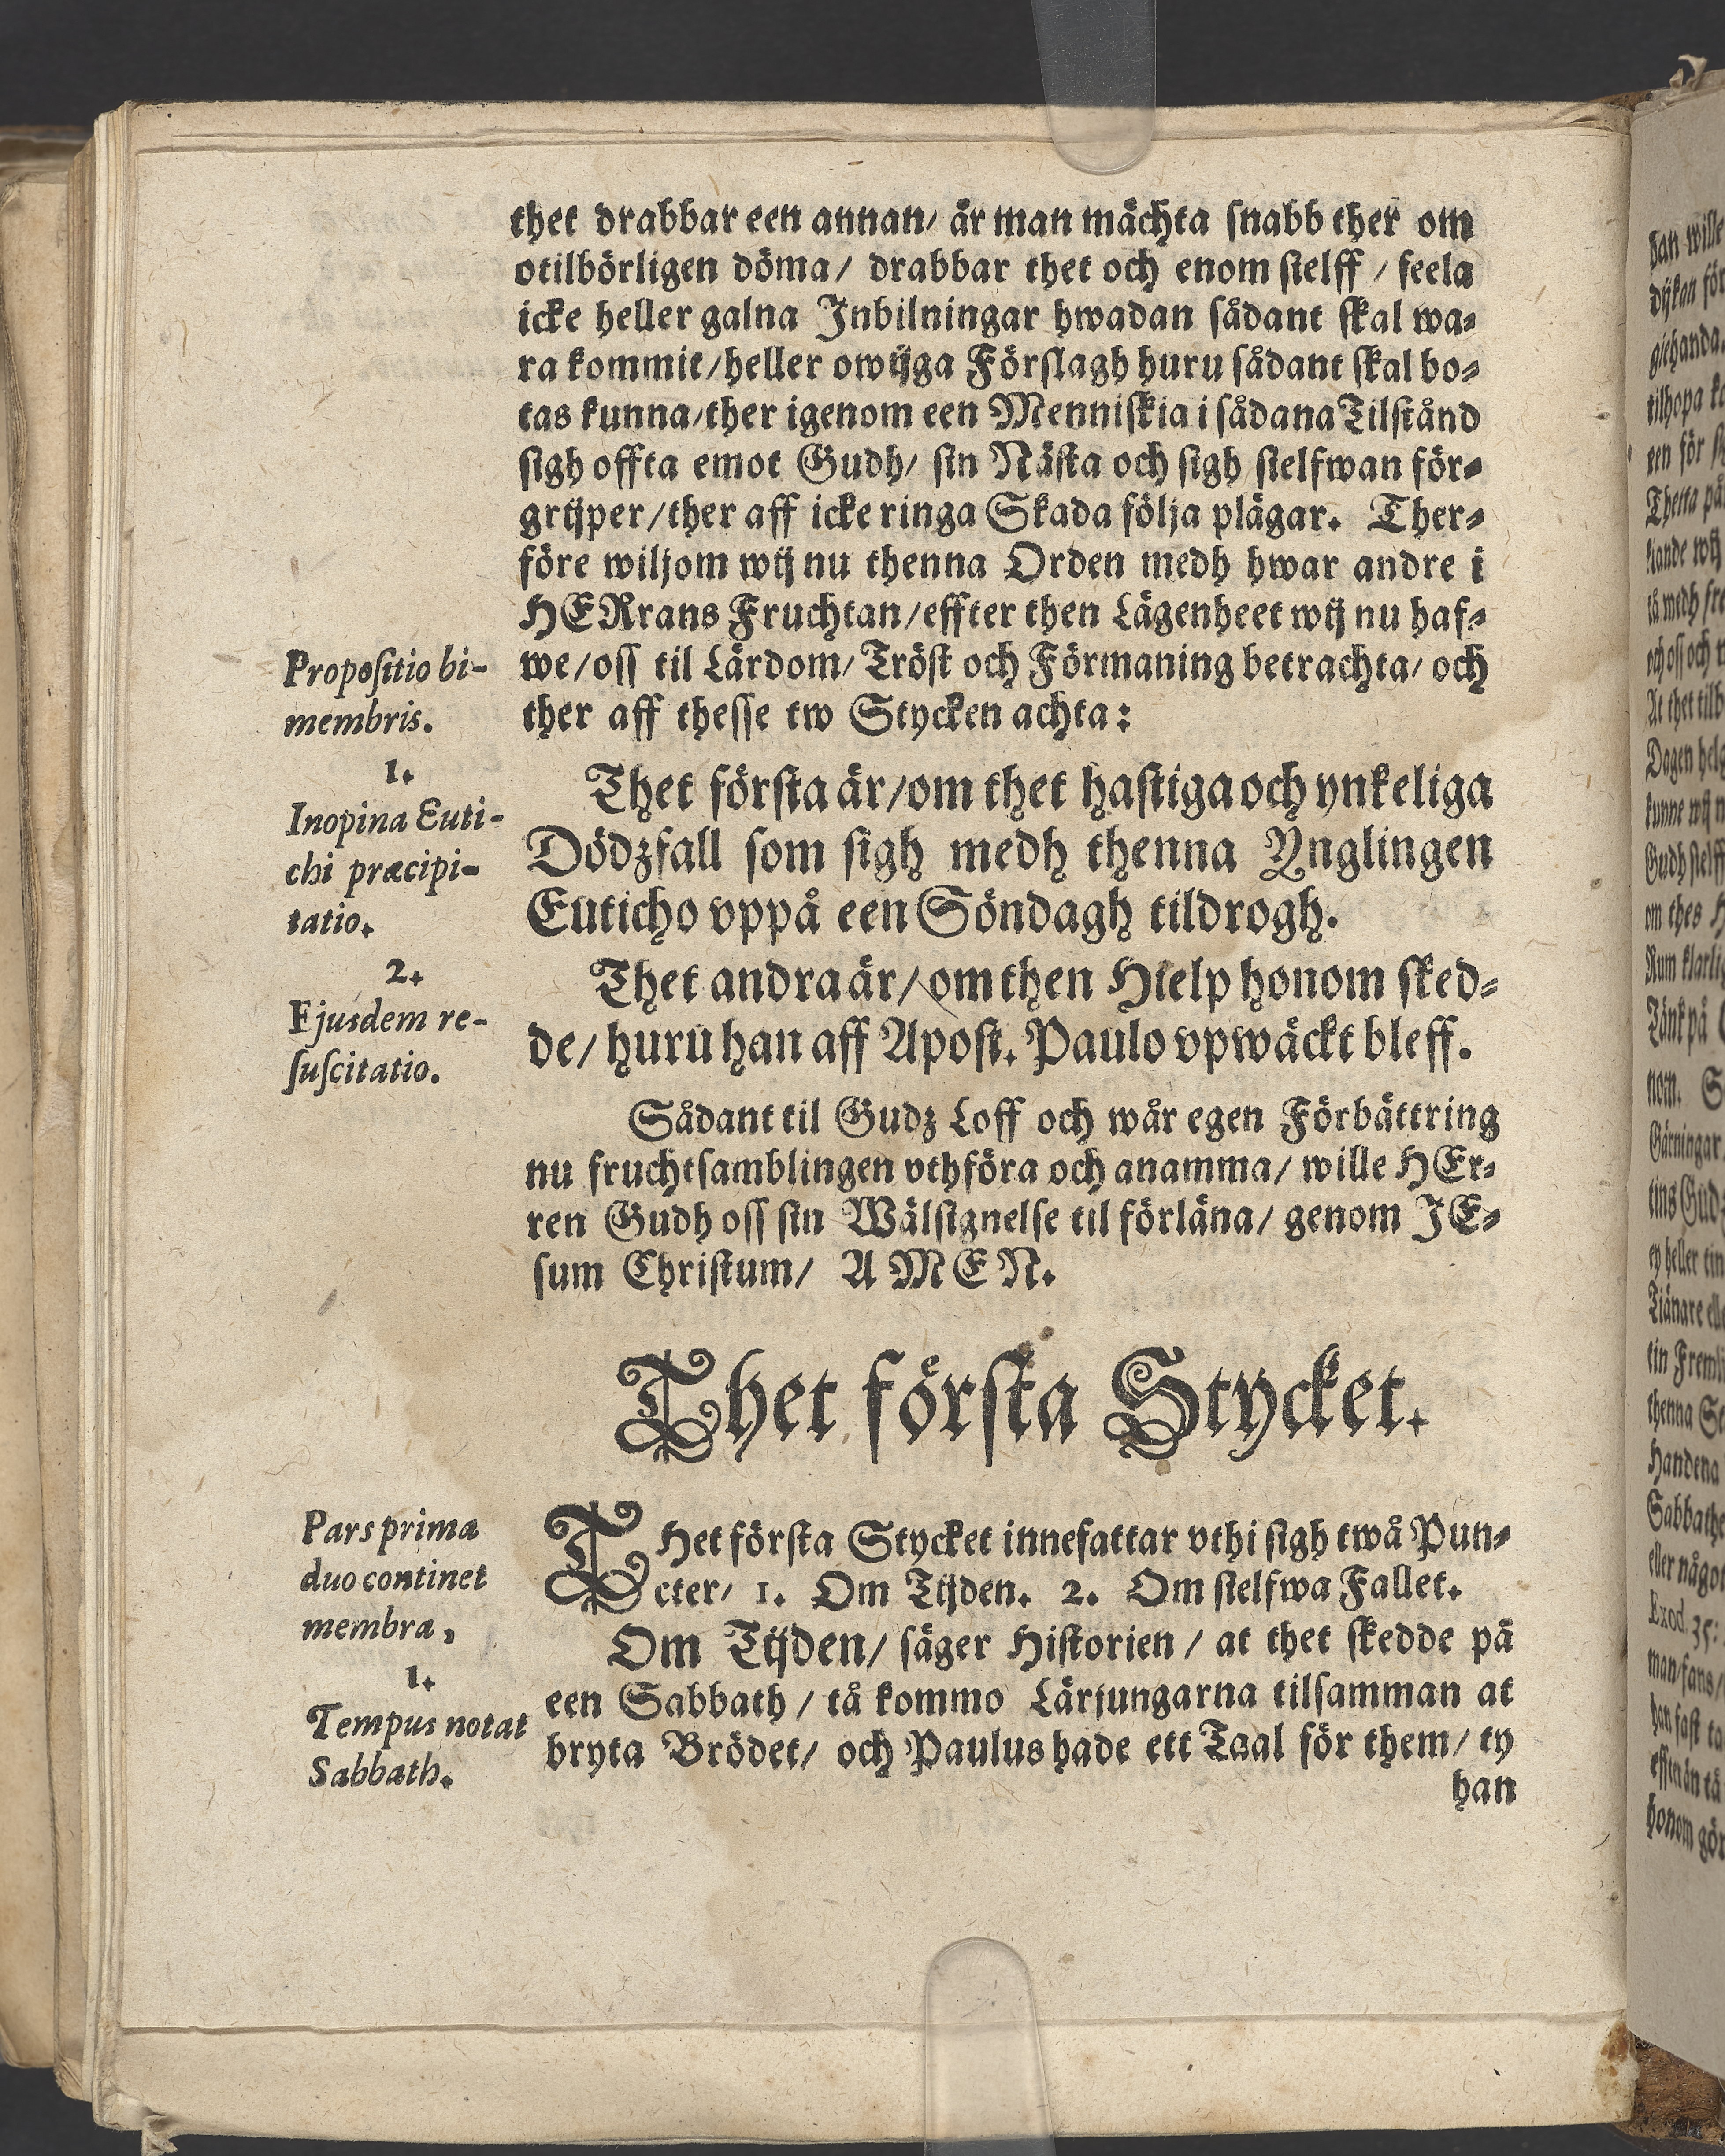 thet drabbar een annan/ är man mächta snabb ther om
otilbörligen döma/ drabbar thet och enom sielff / feela
icke heller galna Inbilningar hwadan sådant skal wa-
ra kommit/heller owijga Förslagh huru sådant skal bo-
tas kunna/ther igenom een Menniskia i sådana Tilstånd
sigh offta emot Gudh/ sin Nästa och sigh sielfwan för-
grijper/ther aff icke ringa Skada följa plägar. Ther-
före wiljom wij nu thenna Orden medh hwar andre i
HERrans Fruchtan/effter then Lägenheet wij nu haf-
we/oss til Lärdom/ Tröst och Förmaning betrachta/ och
ther aff thesse tw Stycken achta:
Propositio bi-
membris.
1.
Inopina Euti-
chi præcipi-
tatio.
2.
Ejusdem re-
suscitatio.
Thet första är/om thet hastiga och ynkeliga
Dödzfall som sigh medh thenna Ynglingen
Euticho vppå een Söndagh tildrogh.
Thet andra är/om then Hielp honom sked-
de/ huru han aff Apost. Paulo vpwäckt bleff.
Sådant til Gudz Loff och wår egen Förbättring
nu fruchtsamblingen vthföra och anamma/ wille HEr-
ren Gudh oss sin Wälsignelse til förläna/ genom JE-
sum Christum/ AMEN.
Thet första Stycket.
Pars prima
duo continet
membra,
1.
Tempus notat
Sabbath.
THet första Stycket innefattar vthi sigh twå Pun-
cter/ 1. Om Tijden. 2. Om sielfwa Fallet.
Om Tijden/ säger Historien / at thet skedde på
een Sabbath / tå kommo Lärjungarna tilsamman at
bryta Brödet/ och Paulus hade ett Taal för them/ ty
han